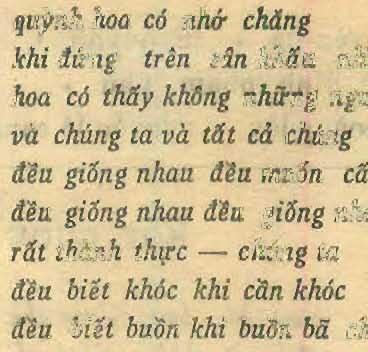 quỳnh hoa có nhớ chăng
khi đứng trên sân khấu
hoa có thấy không những
và chúng ta và tất cả chúng
đều giống nhau đều muốn
đều giống nhau đều giống
rất thành thực — chúng ta
đều biết khóc khi cần khóc
đều biết buồn khi buồn bã